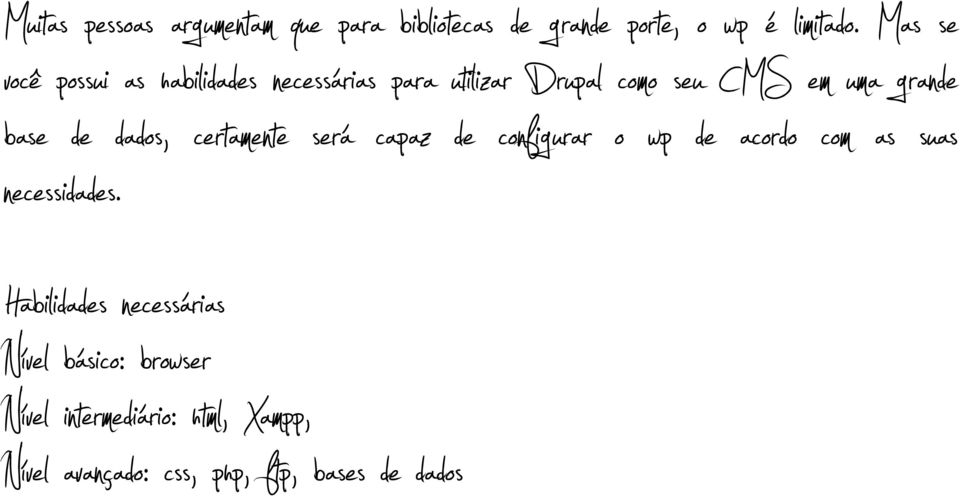 Muitas pessoas argumentam que para bibliotecas de grande porte, o wp é limitado. Mas se
você possui as habilidades necessárias para utilizar Drupal como seu CMS em uma grande
base de dados, certamente será capaz de configurar o wp de acordo com as suas
necessidades.
Habilidades necessárias
Nível básico: browser
Nível intermediário: html, Xampp,
Nível avançado: css, php, ftp, bases de dados